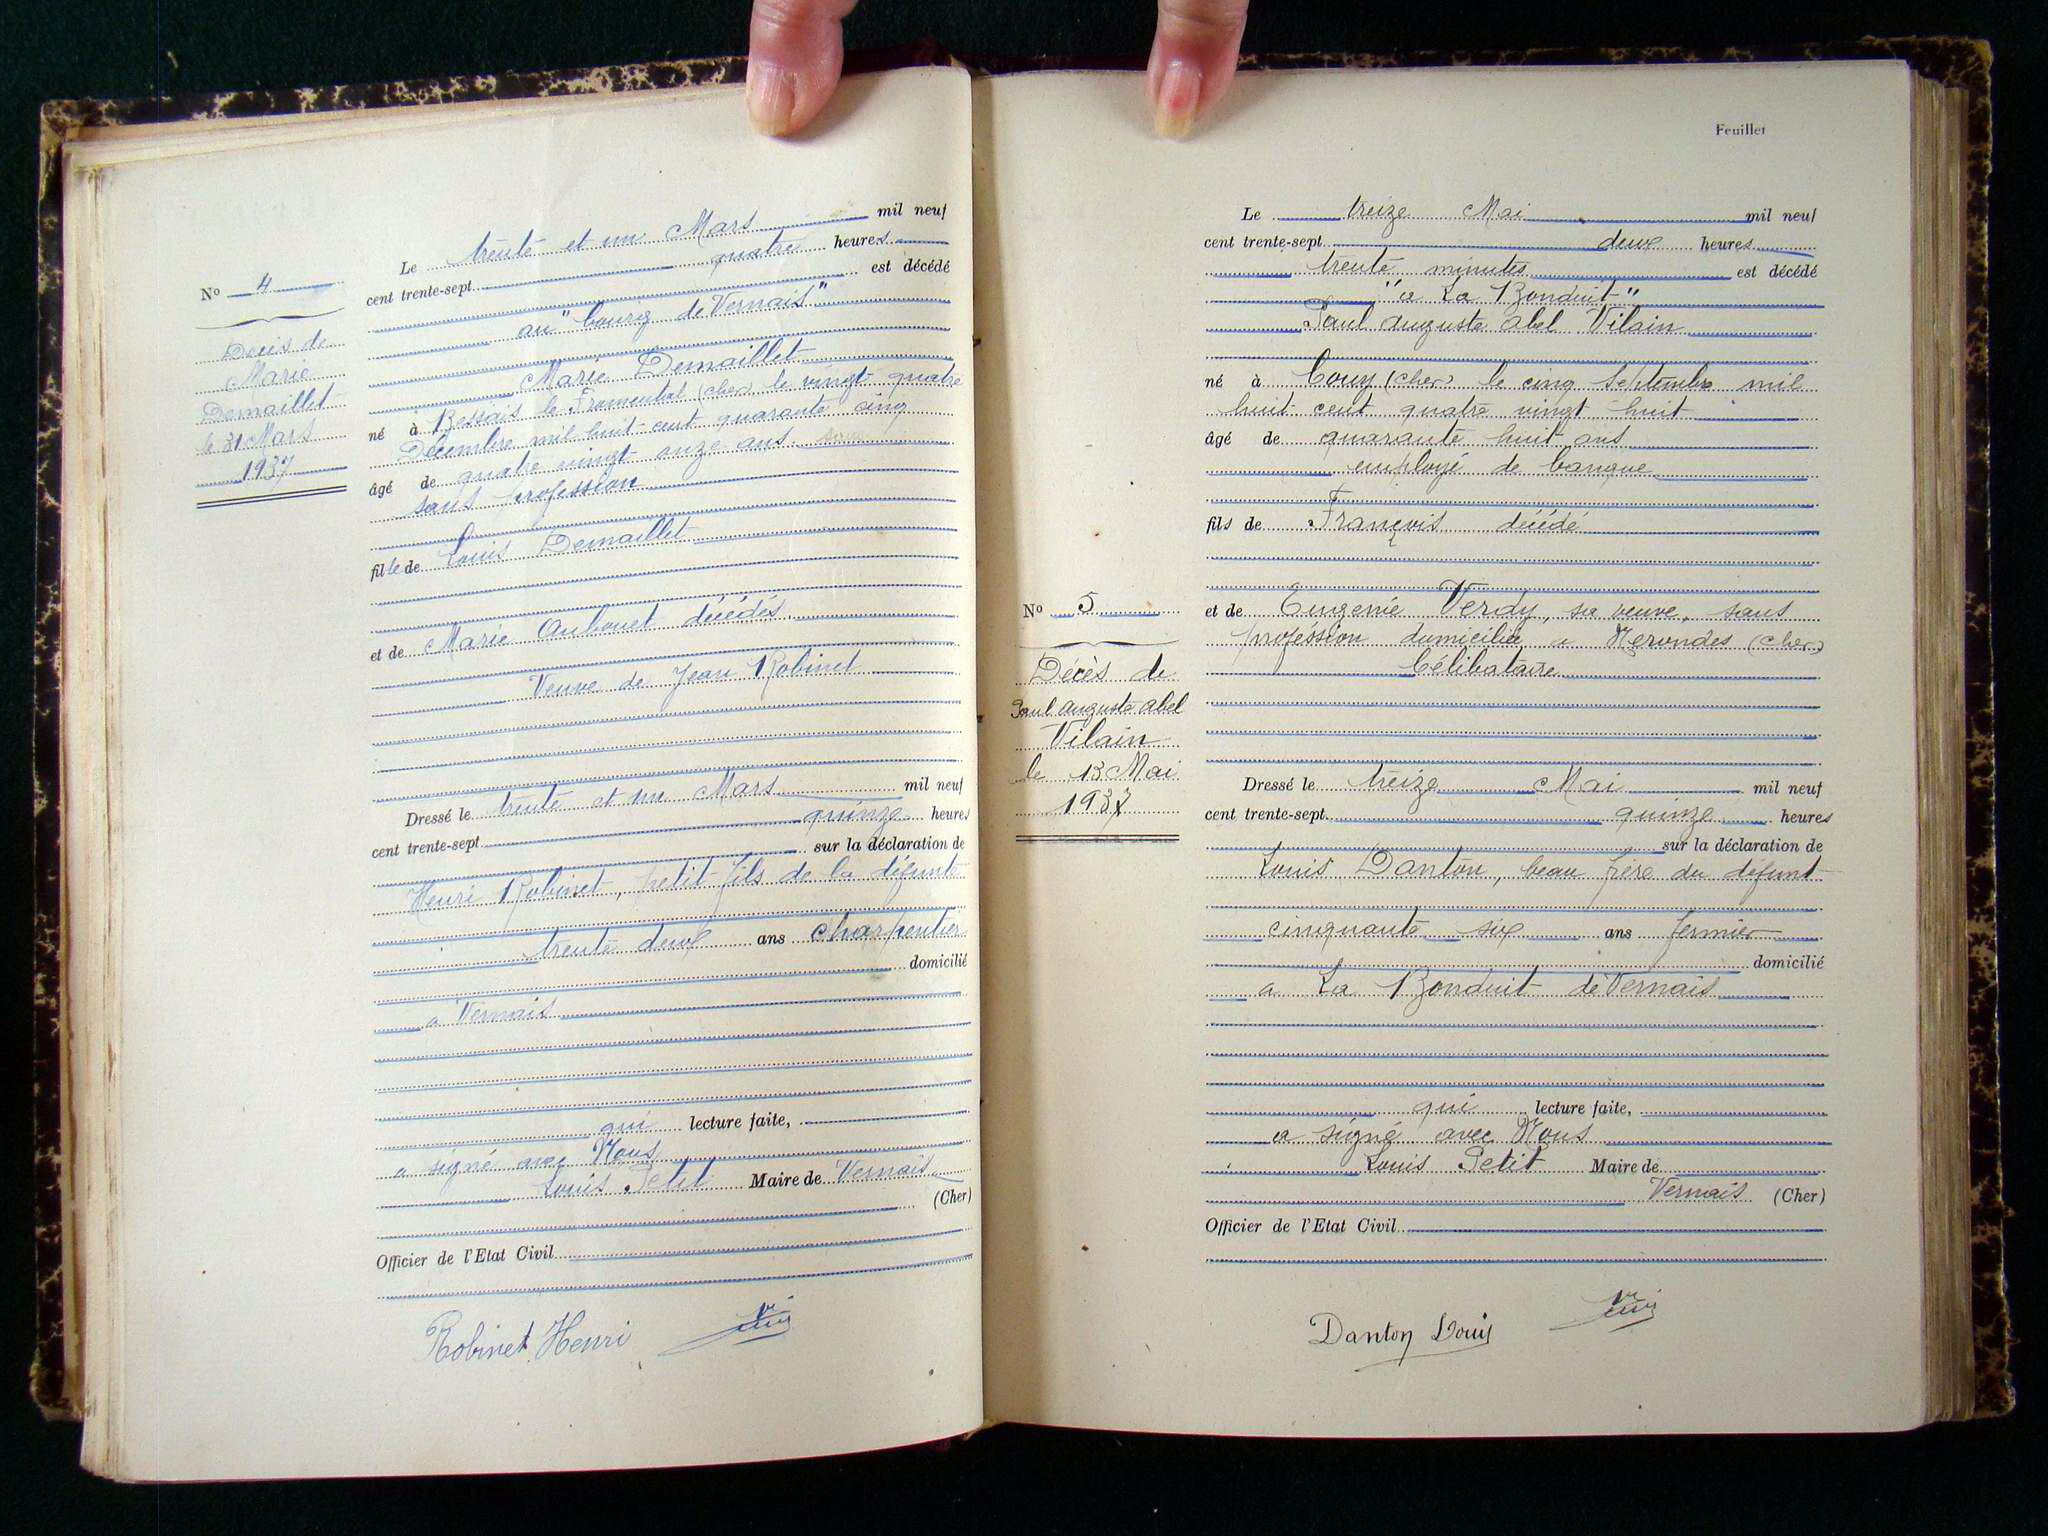 No 4
Décès de
Marie
Demaillet
le 31 Mars
1937
Le trente et un Mars mil neuf
cent trente-sept quatre heures
est décédé
au "bourg de Vernais"
Marie Demaillet
né à Bessais le Fromental (cher) le vingt quatre
Décembre mil huit cent quarante cinq
âgé de quatre vingt onze ans
sans profession
fille de Louis Demaillet
et de Marie Aubouet décédés.
Veuve de Jean Robinet
Dressé le trente et un Mars mil neuf
cent trente-sept quinze heures
sur la déclaration de
Henri Robinet, petit fils de la défunte
trente deux ans charpentier
domicilié
a Vernais
qui lecture faite,
a signé avec Nous
Louis Petit Maire de Vernais
(Cher)
Officier de l'Etat Civil
Robinet Henri
Feuillet
No 5
Décès de
Paul auguste abel
Vilain
le 13 Mai
1937
Le treize Mai mil neuf
cent trente-sept deux heures
trente minutes est décédé
"a La Bonduit"
Paul auguste abel Vilain
né à Couy (cher) le cinq Septembre mil
huit cent quatre vingt huit
âgé de quarante huit ans
employé de banque
fils de François décédé
et de Eugenie Verdy, sa veuve, sans
profession domiciliée a Nerondes (cher)
Célibataire
Dressé le treize Mai mil neuf
cent trente-sept quinze heures
sur la déclaration de
Louis Danton, beau frère du défunt
cinquante six ans fermier
domicilié
a La Bonduit de Vernais
qui lecture faite,
a signé avec Nous
Louis Petit Maire de
Vernais (Cher)
Officier de l'Etat Civil
Danton Louis